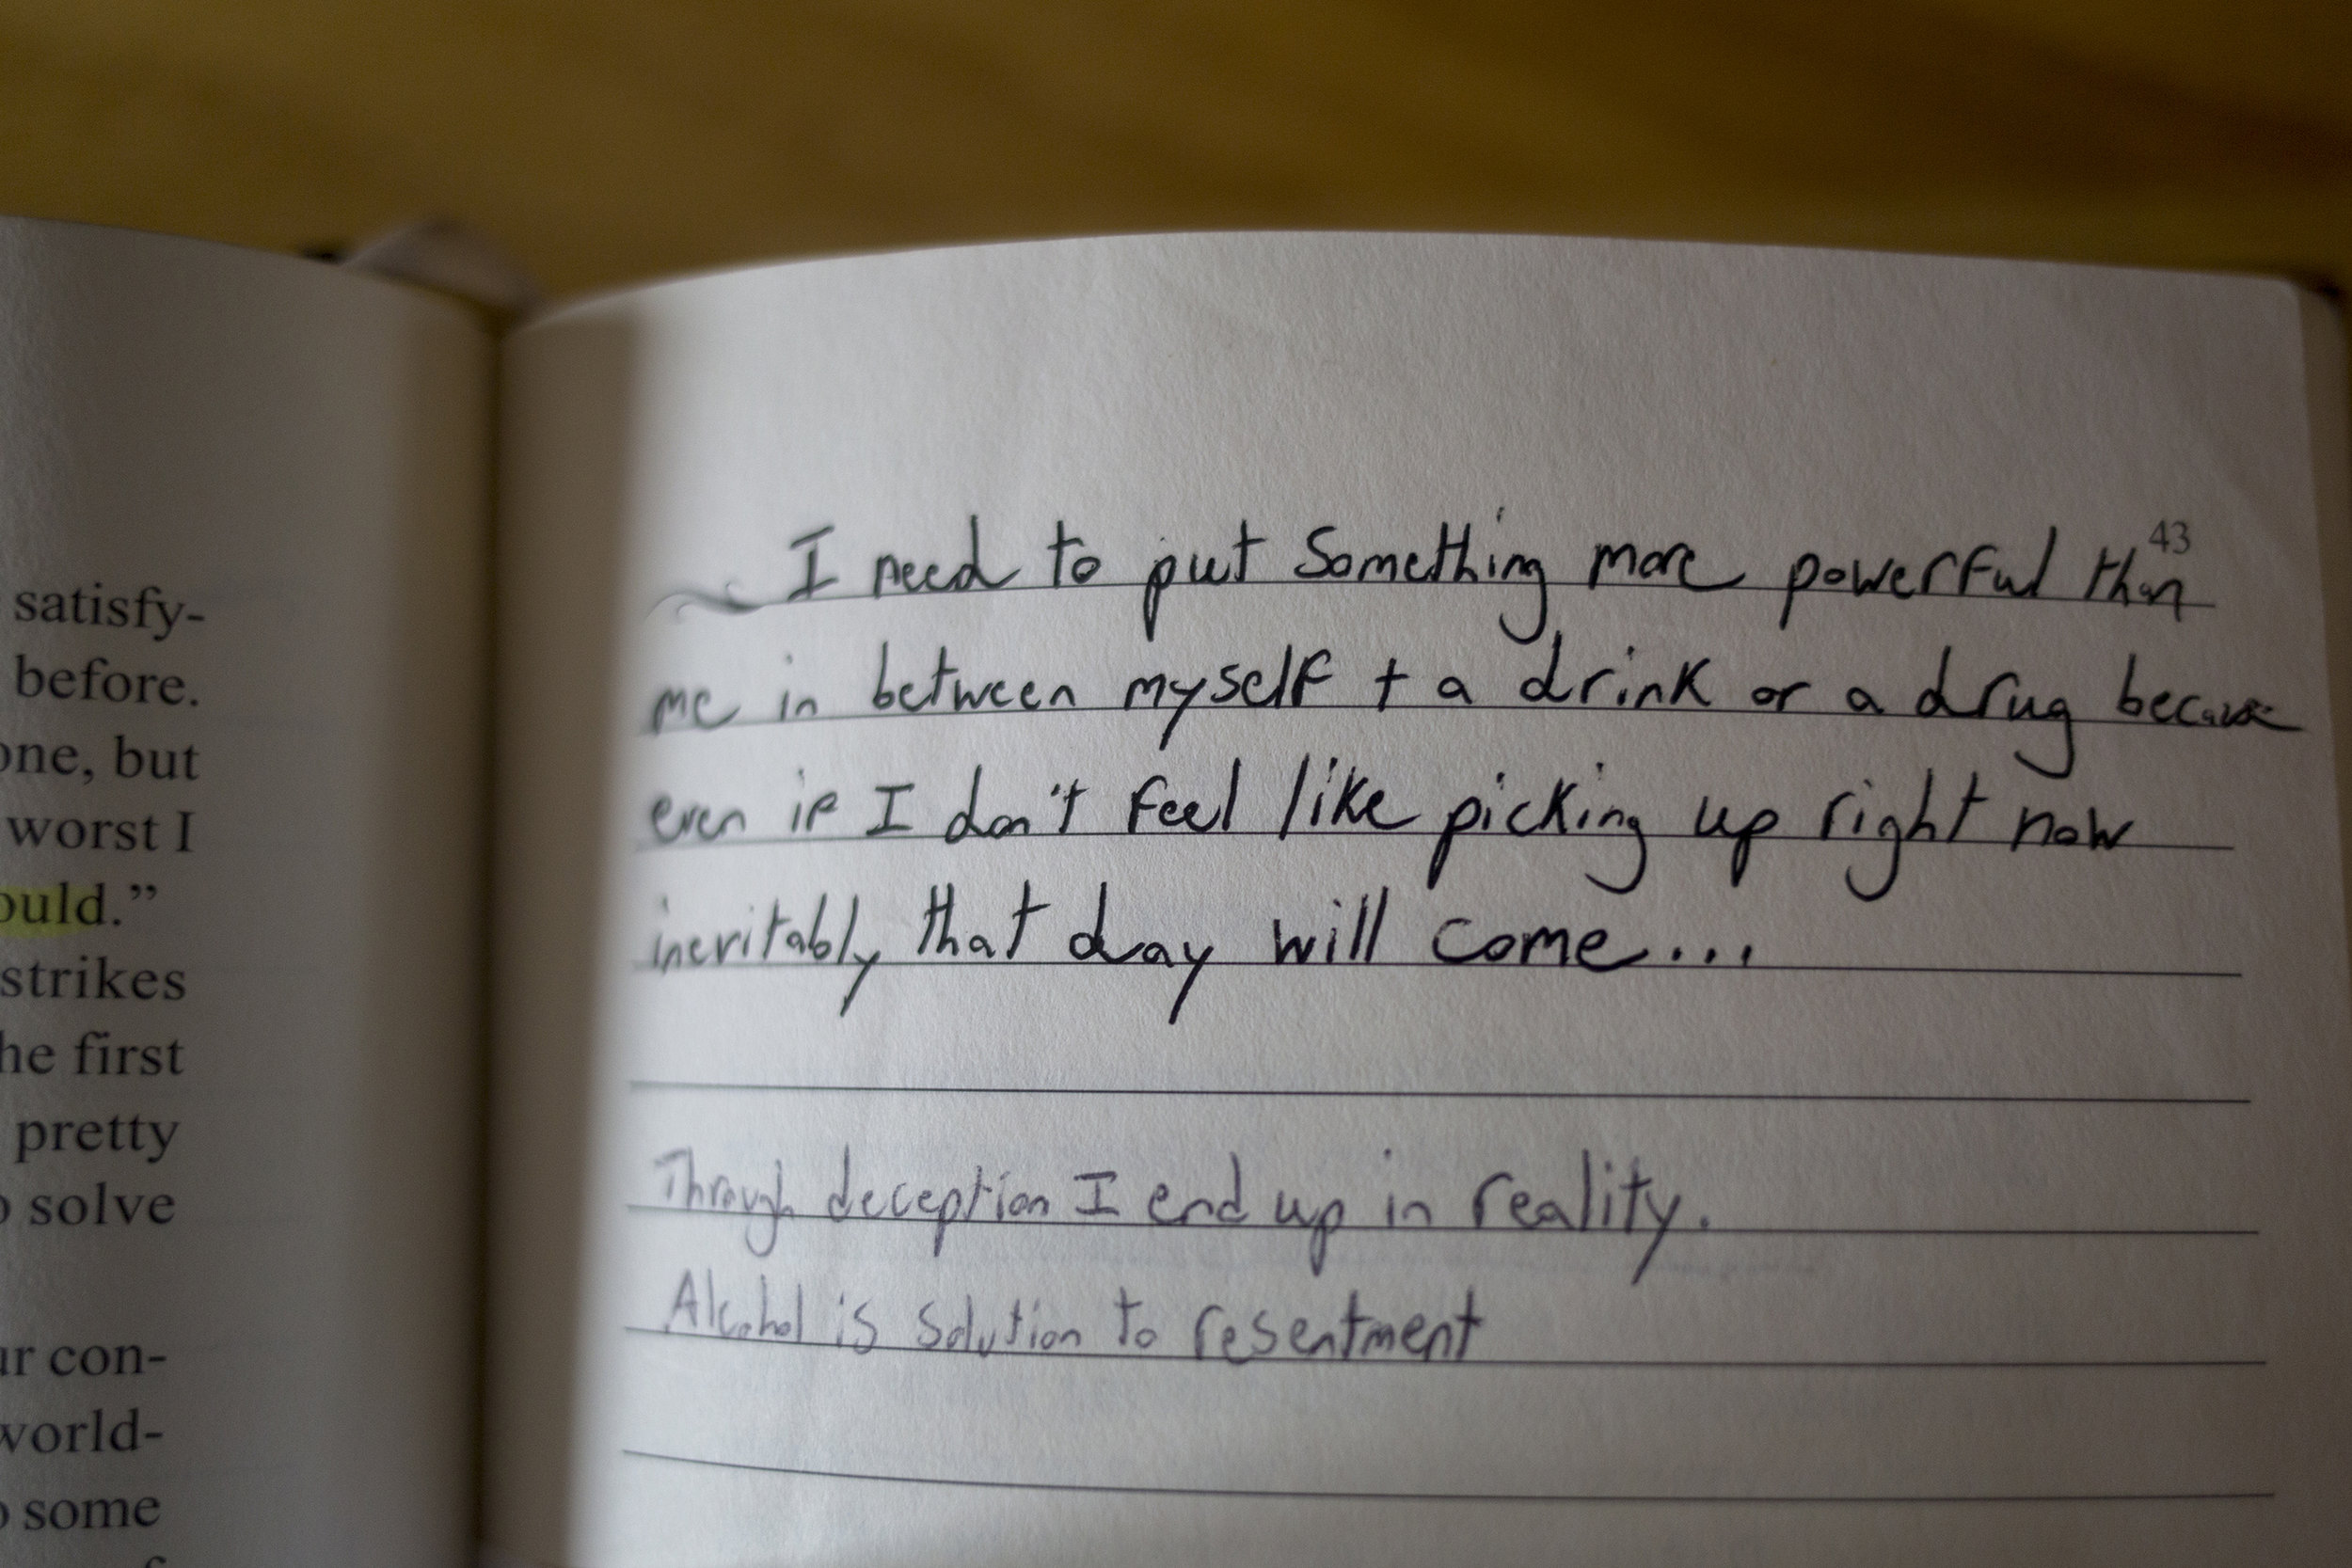 satisfy-
before.
one, but
worst I
ould.”
strikes
he first
pretty
solve
ur con-
world-
some
43
I need to put Something more powerful than
me in between myself + a drink or a drug because
even if I don't feel like picking up right now
inevitably that day will come...
Through deception I end up in reality.
Alcohol is solution to resentment